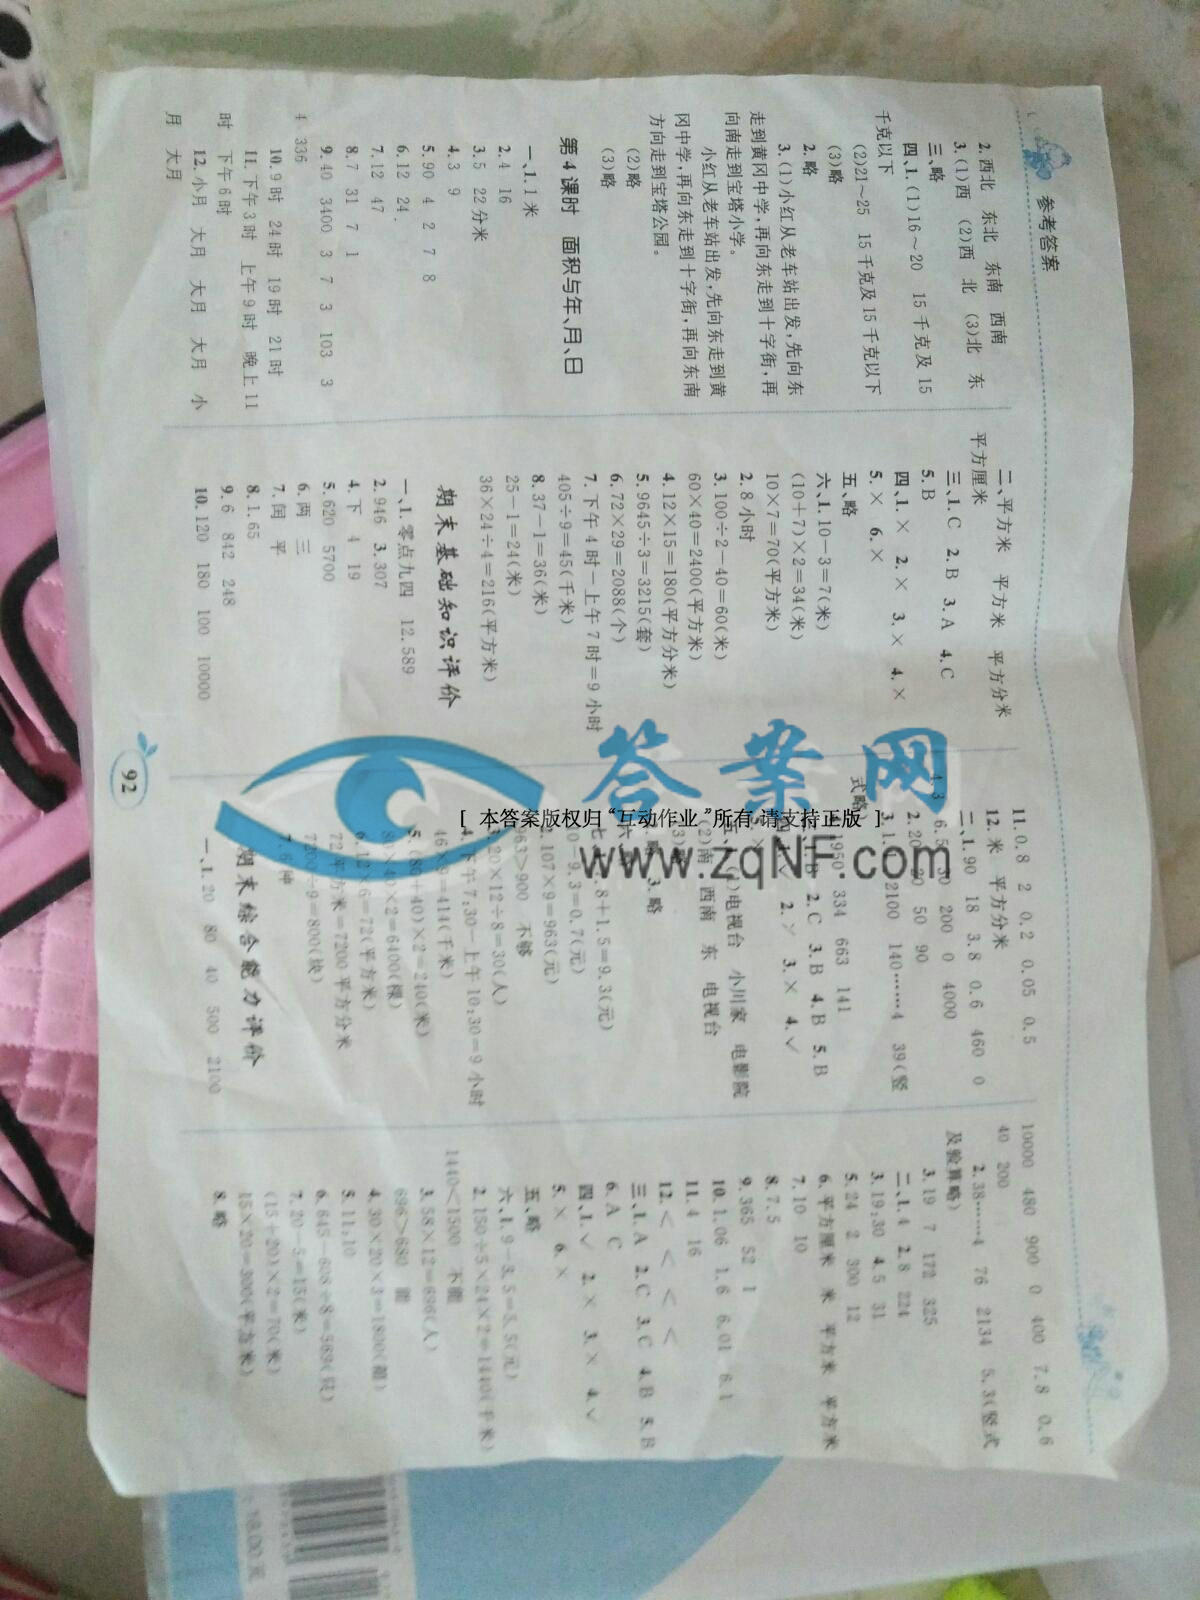 参考答案
2.西北 东北 东南 西南
3.(1)西 (2)西 北 (3)北 东
三、略
四、1.(1)16～20 15千克及15
千克以下
(2)21～25 15千克及15千克以下
(3)略
2.略
3.(1)小红从老车站出发,先向东
走到黄冈中学,再向东走到十字街,再
向南走到宝塔小学。
小红从老车站出发,先向东走到黄
冈中学,再向东走到十字街,再向东南
方向走到宝塔公园。
(2)略
(3)略
第4课时 面积与年、月、日
一、1.1米
2.4 16
3.5 22分米
4.3 9
5.90 4 2 7 8
6.12 24
7.12 47
8.7 31 7 1
9.40 3400 3 7 3 103 3
4 336
10.9时 24时 19时 21时
11.下午3时 上午9时 晚上11
时 下午6时
12.小月 大月 大月 大月 小
月 大月
二、平方米 平方米 平方分米
平方厘米
三、1.C 2.B 3.A 4.C
5.B
四、1.× 2.× 3.× 4.×
5.× 6.×
五、略
六、1.10－3=7(米)
(10+7)×2=34(米)
10×7=70(平方米)
2.8小时
3.100÷2－40=60(米)
60×40=2400(平方米)
4.12×15=180(平方分米)
5.9645÷3=3215(套)
6.72×29=2088(个)
7.下午4时－上午7时=9小时
405÷9=45(千米)
8.37－1=36(米)
25－1=24(米)
36×24÷4=216(平方米)
期末基础知识评价
一、1.零点九四 12.589
2.946 3.307
4.下 4 19
5.620 5700
6.两 三
7.闰 平
8.1.65
9.6 842 248
10.120 180 100 10000
11.0.8 2 0.2 0.05 0.5
12.米 平方分米
二、1.90 18 3.8 0.6 460 0
200 0 4000
50 90
2100 140……4 39(竖
式略)
1950 334 663 141
2.C 3.B 4.B 5.B
3.× 4.√
电视台 小川家 电影院
(2)南 西南 东 电视台
3.略
8+1.5=9.3(元)
9.3=0.7(元)
107×9=963(元)
963>900 不够
3.20×12÷8=30(人)
4.下午7:30－上午10:30=9小时
46×9=414(千米)
5.(80+40)×2=240(米)
80×40×2=6400(棵)
6.12×6=72(平方米)
72平方米=7200平方分米
7200÷9=800(块)
7.6种
期末综合能力评价
一、1.20 80 40 500 2100
10000 480 900 0 400 7.8 0.6
40 200
2.38……4 76 2134 5.3(竖式
及验算略)
3.19 7 172 325
二、1.4 2.8 224
3.19:30 4.5 31
5.24 2 300 12
6.平方厘米 米 平方米 平方米
7.10 10
8.7.5
9.365 52 1
10.1.06 1.6 6.01 6.1
11.4 16
12.< < < <
三、1.A 2.C 3.C 4.B 5.B
6.A C
四、1.√ 2.× 3.× 4.√
5.× 6.×
五、略
六、1.9－3.5=5.5(元)
2.150÷5×24×2=1440(千米)
1440<1500 不能
3.58×12=696(人)
696>680 能
4.30×20×3=1800(箱)
5.11:10
6.645－608÷8=569(只)
7.20－5=15(米)
(15+20)×2=70(米)
15×20=300(平方米)
8.略
92
答案网
www.zqNF.com
[ 本答案版权归“互动作业”所有,请支持正版 ]
18.00元